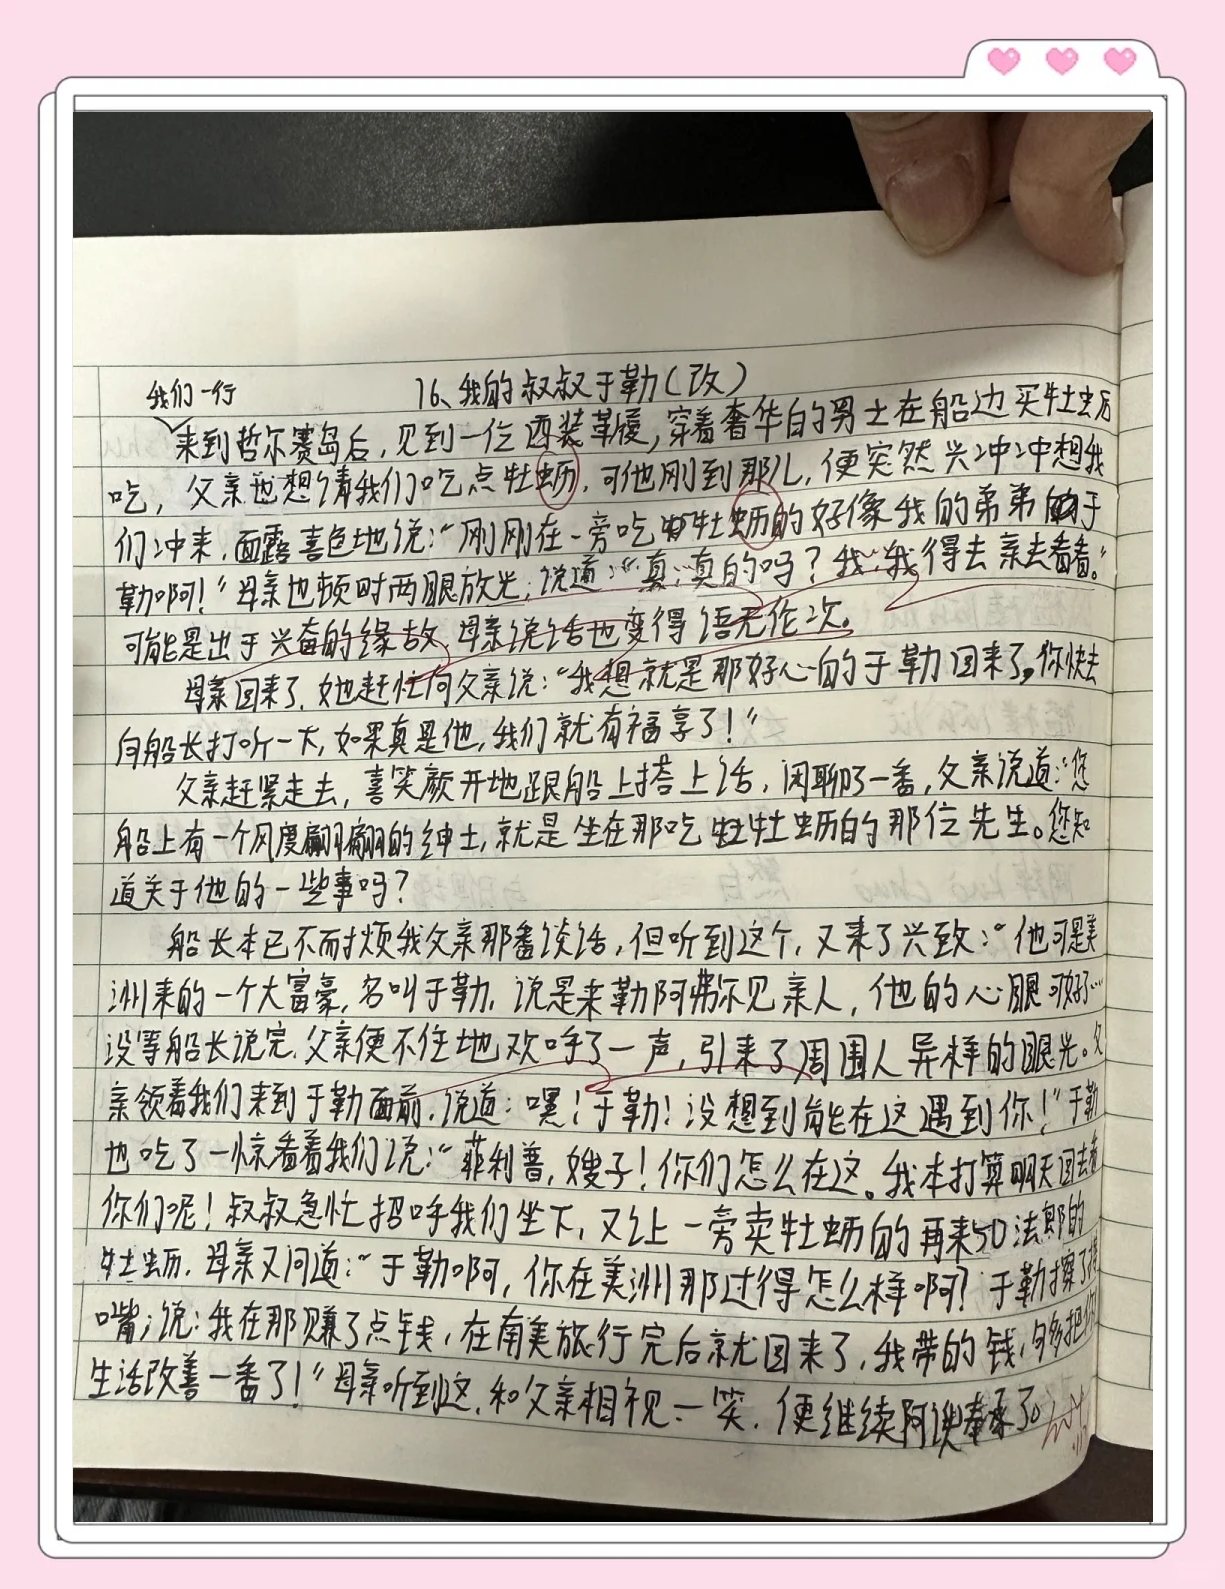 我们一行
16、我的叔叔于勒(改)
来到哲尔赛岛后，见到一位西装革履，穿着奢华的男士在船边买牡虫后
吃，父亲也想请我们吃点牡蛎，可他刚到那儿，便突然兴冲冲想我
们冲来，面露喜色地说：“刚刚在一旁吃牡蛎的好像我的弟弟于
勒啊！”母亲也顿时两眼放光，说道：“真，真的吗？我，我得去亲去看看。”
可能是出于兴奋的缘故，母亲说话也变得语无伦次。
母亲回来了，她赶忙向父亲说：“我想就是那好心的于勒回来了，你快去
向船长打听一大，如果真是他，我们就有福享了！”
父亲赶紧走去，喜笑颜开地跟船上搭上话，闲聊了一番，父亲说道：“您
船上有一个风度翩翩的绅士，就是坐在那吃牡牡蛎的那位先生。您知
道关于他的一些事吗？
船长本已不耐烦我父亲那番谈话，但听到这个，又来了兴致：“他可是美
洲来的一个大富豪，名叫于勒，说是来勒阿弗尔见亲人，他的心眼可好…
没等船长说完，父亲便不住地欢呼了一声，引来了周围人异样的眼光。父
亲领着我们来到于勒面前，说道：嘿！于勒！没想到能在这遇到你！”于勒
也吃了一惊看着我们说：“菲利普，嫂子！你们怎么在这。我本打算明天回去看
你们呢！叔叔急忙招呼我们坐下，又让一旁卖牡蛎的再来50法郎的
牡蛎，母亲又问道：“于勒啊，你在美洲那过得怎么样啊？于勒擦了擦
嘴，说：我在那赚了点钱，在南美旅行完后就回来了，我带的钱，够把你
生活改善一番了！”母亲听到这，和父亲相视一笑，便继续阿谀奉承了。